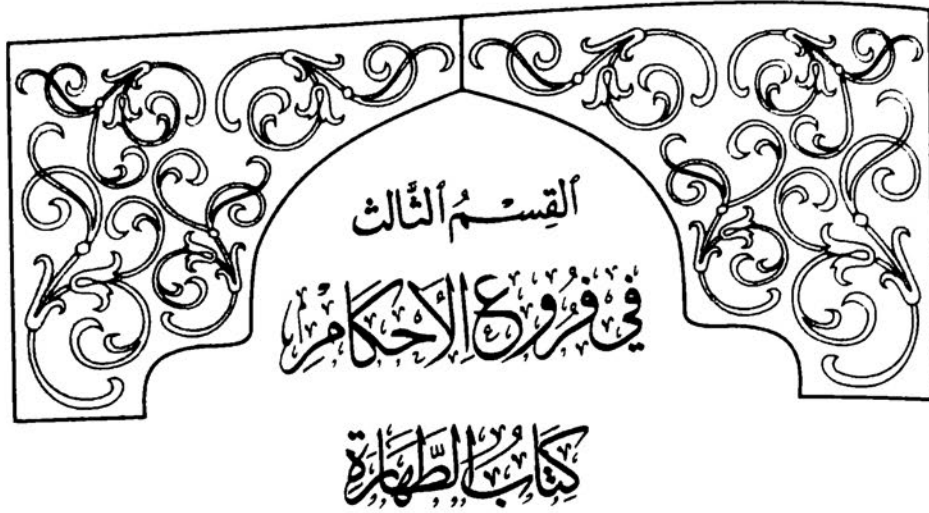 ٱلقِسْمُ ٱلثَّالث
فِي فُرُوعِ الأَحْكَامِ
كِتَابُ الطَّهَارَةِ